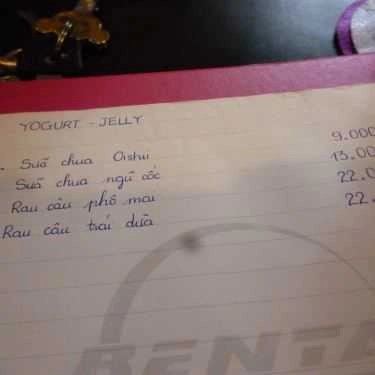 YOGURT - JELLY
. Suã chua Oishi 9.000
Suã chua ngũ cốc 13.00
Rau câu phô mai 22.0
Rau câu trái dừa 22.
BENTA